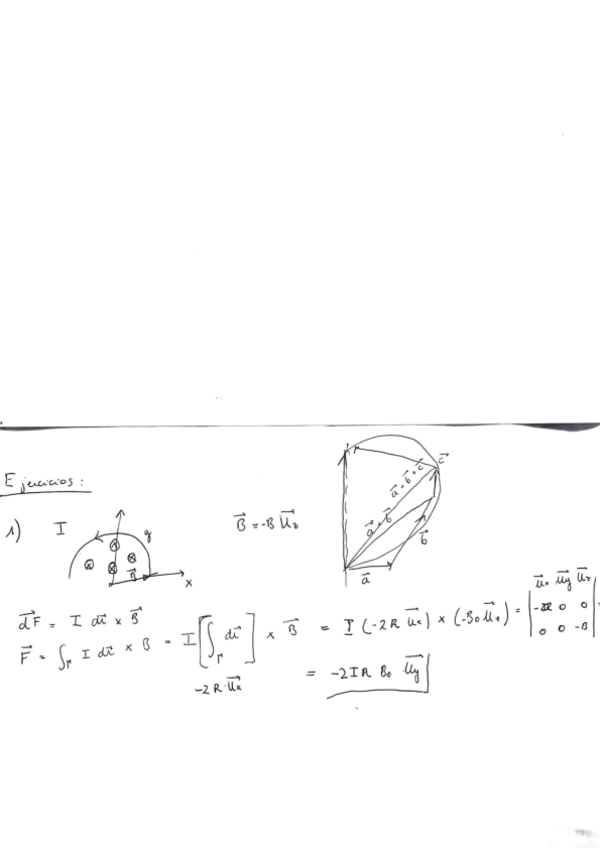 Ejercicios:
1) I
B⃗ = -B u⃗z
x
R
a⃗
b⃗
c⃗
a⃗ + b⃗
a⃗ + b⃗ + c⃗
dF⃗ = I dl⃗ × B⃗
F⃗ = ∫Γ I dl⃗ × B = I [∫Γ dl⃗] × B⃗ = I (-2R u⃗x) × (-B₀ u⃗z) =
u⃗x u⃗y u⃗z
-2R 0 0
0 0 -B
-2R·u⃗x
= -2IR B₀ u⃗y